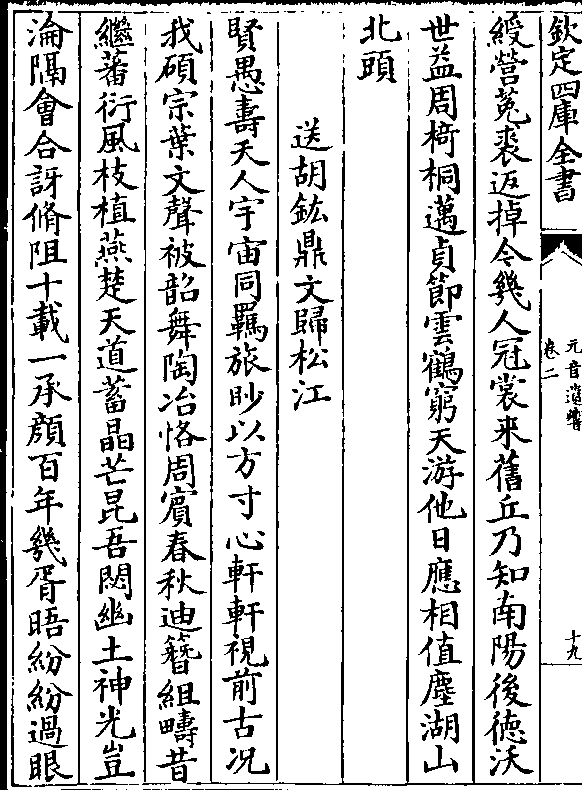 欽定四庫全書
元音遺響
卷二
十九
綬營菟裘返掉令幾人冠裳来舊丘乃知南陽後徳沃
世益周椅桐邁貞節雲鶴窮天游他日應相值塵湖山
北頭
送胡鈜鼎文歸松江
賢愚壽夭人宇宙同羈旅眇以方寸心軒軒視前古况
我碩宗葉文聲被韶舞陶冶恪周賓春秋迪簪組疇昔
繼蕃衍風枝植燕楚天道蓄晶芒昆吾閟幽土神光豈
淪隔會合訝脩阻十載一承顔百年幾胥晤紛紛過眼